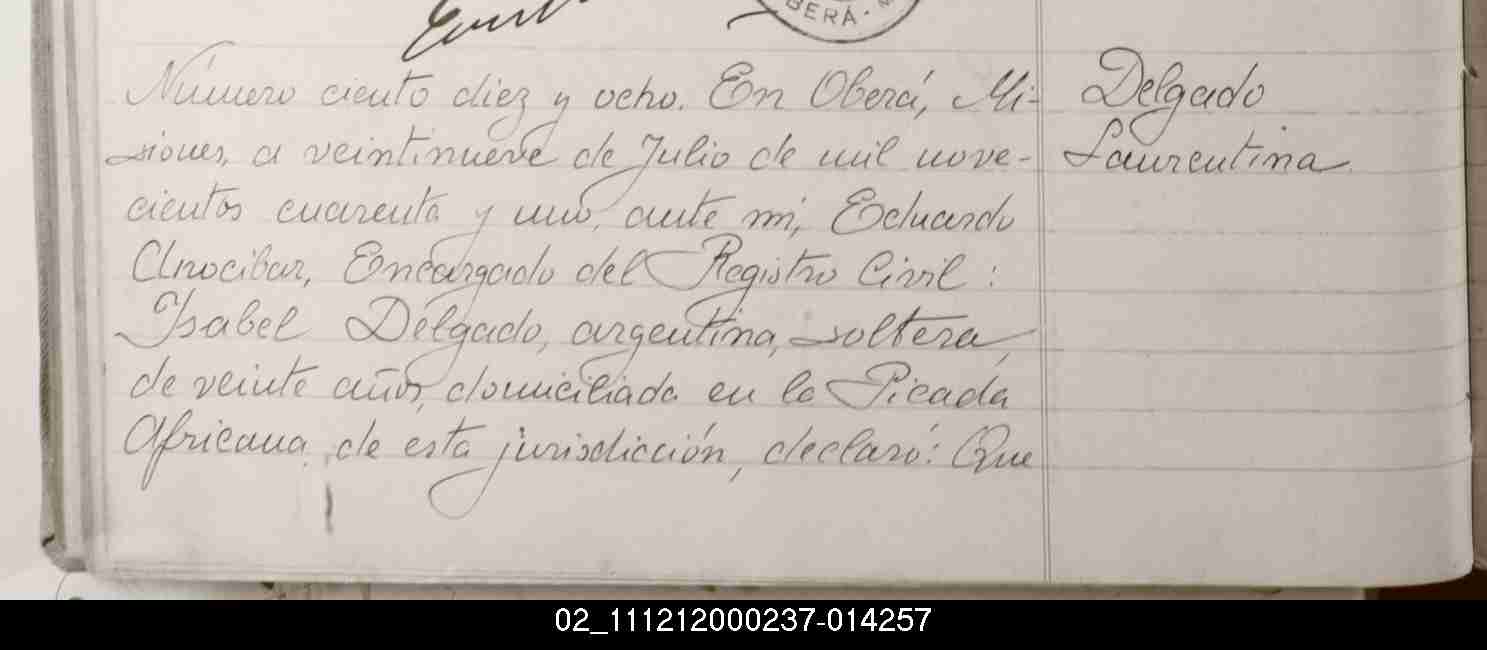 BERÁ · M
Número ciento diez y ocho. En Oberá, Mi-
siones, a veintinueve de Julio de mil nove-
cientos cuarenta y uno, ante mi, Eduardo
Arocibar, Encargado del Registro Civil :
Ysabel Delgado, argentina, soltera,
de veinte años, domiciliada en la Picada
Africana, de esta jurisdicción, declaró: Que
Delgado
Laurentina
02_111212000237-014257